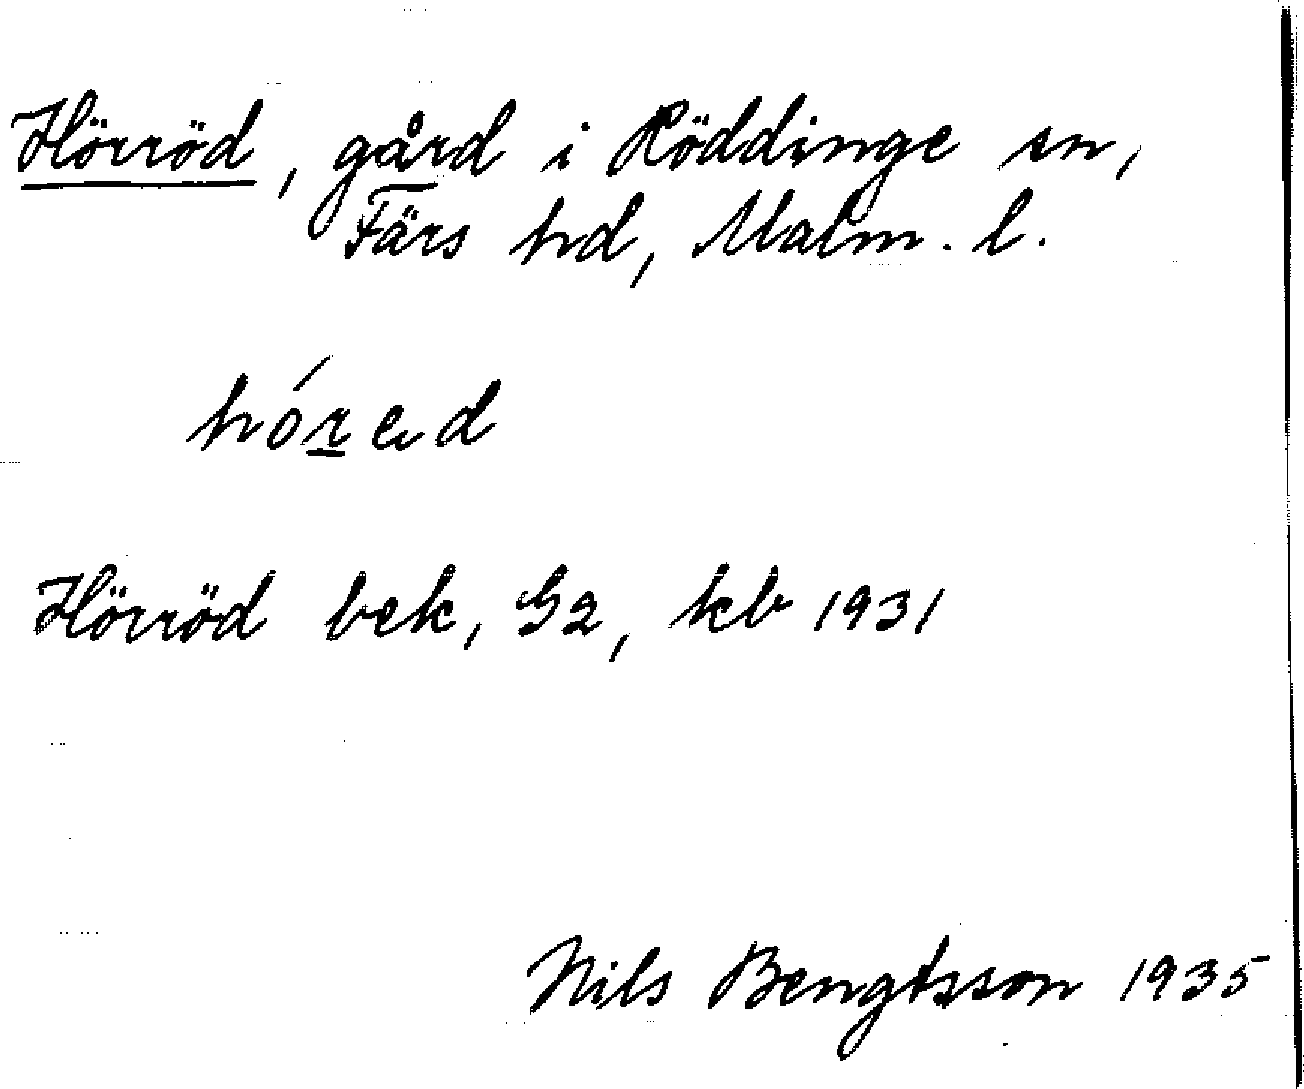 Hörröd, gård i Röddinge sn,
Färs hd, Malm. l.
hóred
Hörröd bek, G2, kb 1931
Nils Bengtsson 1935